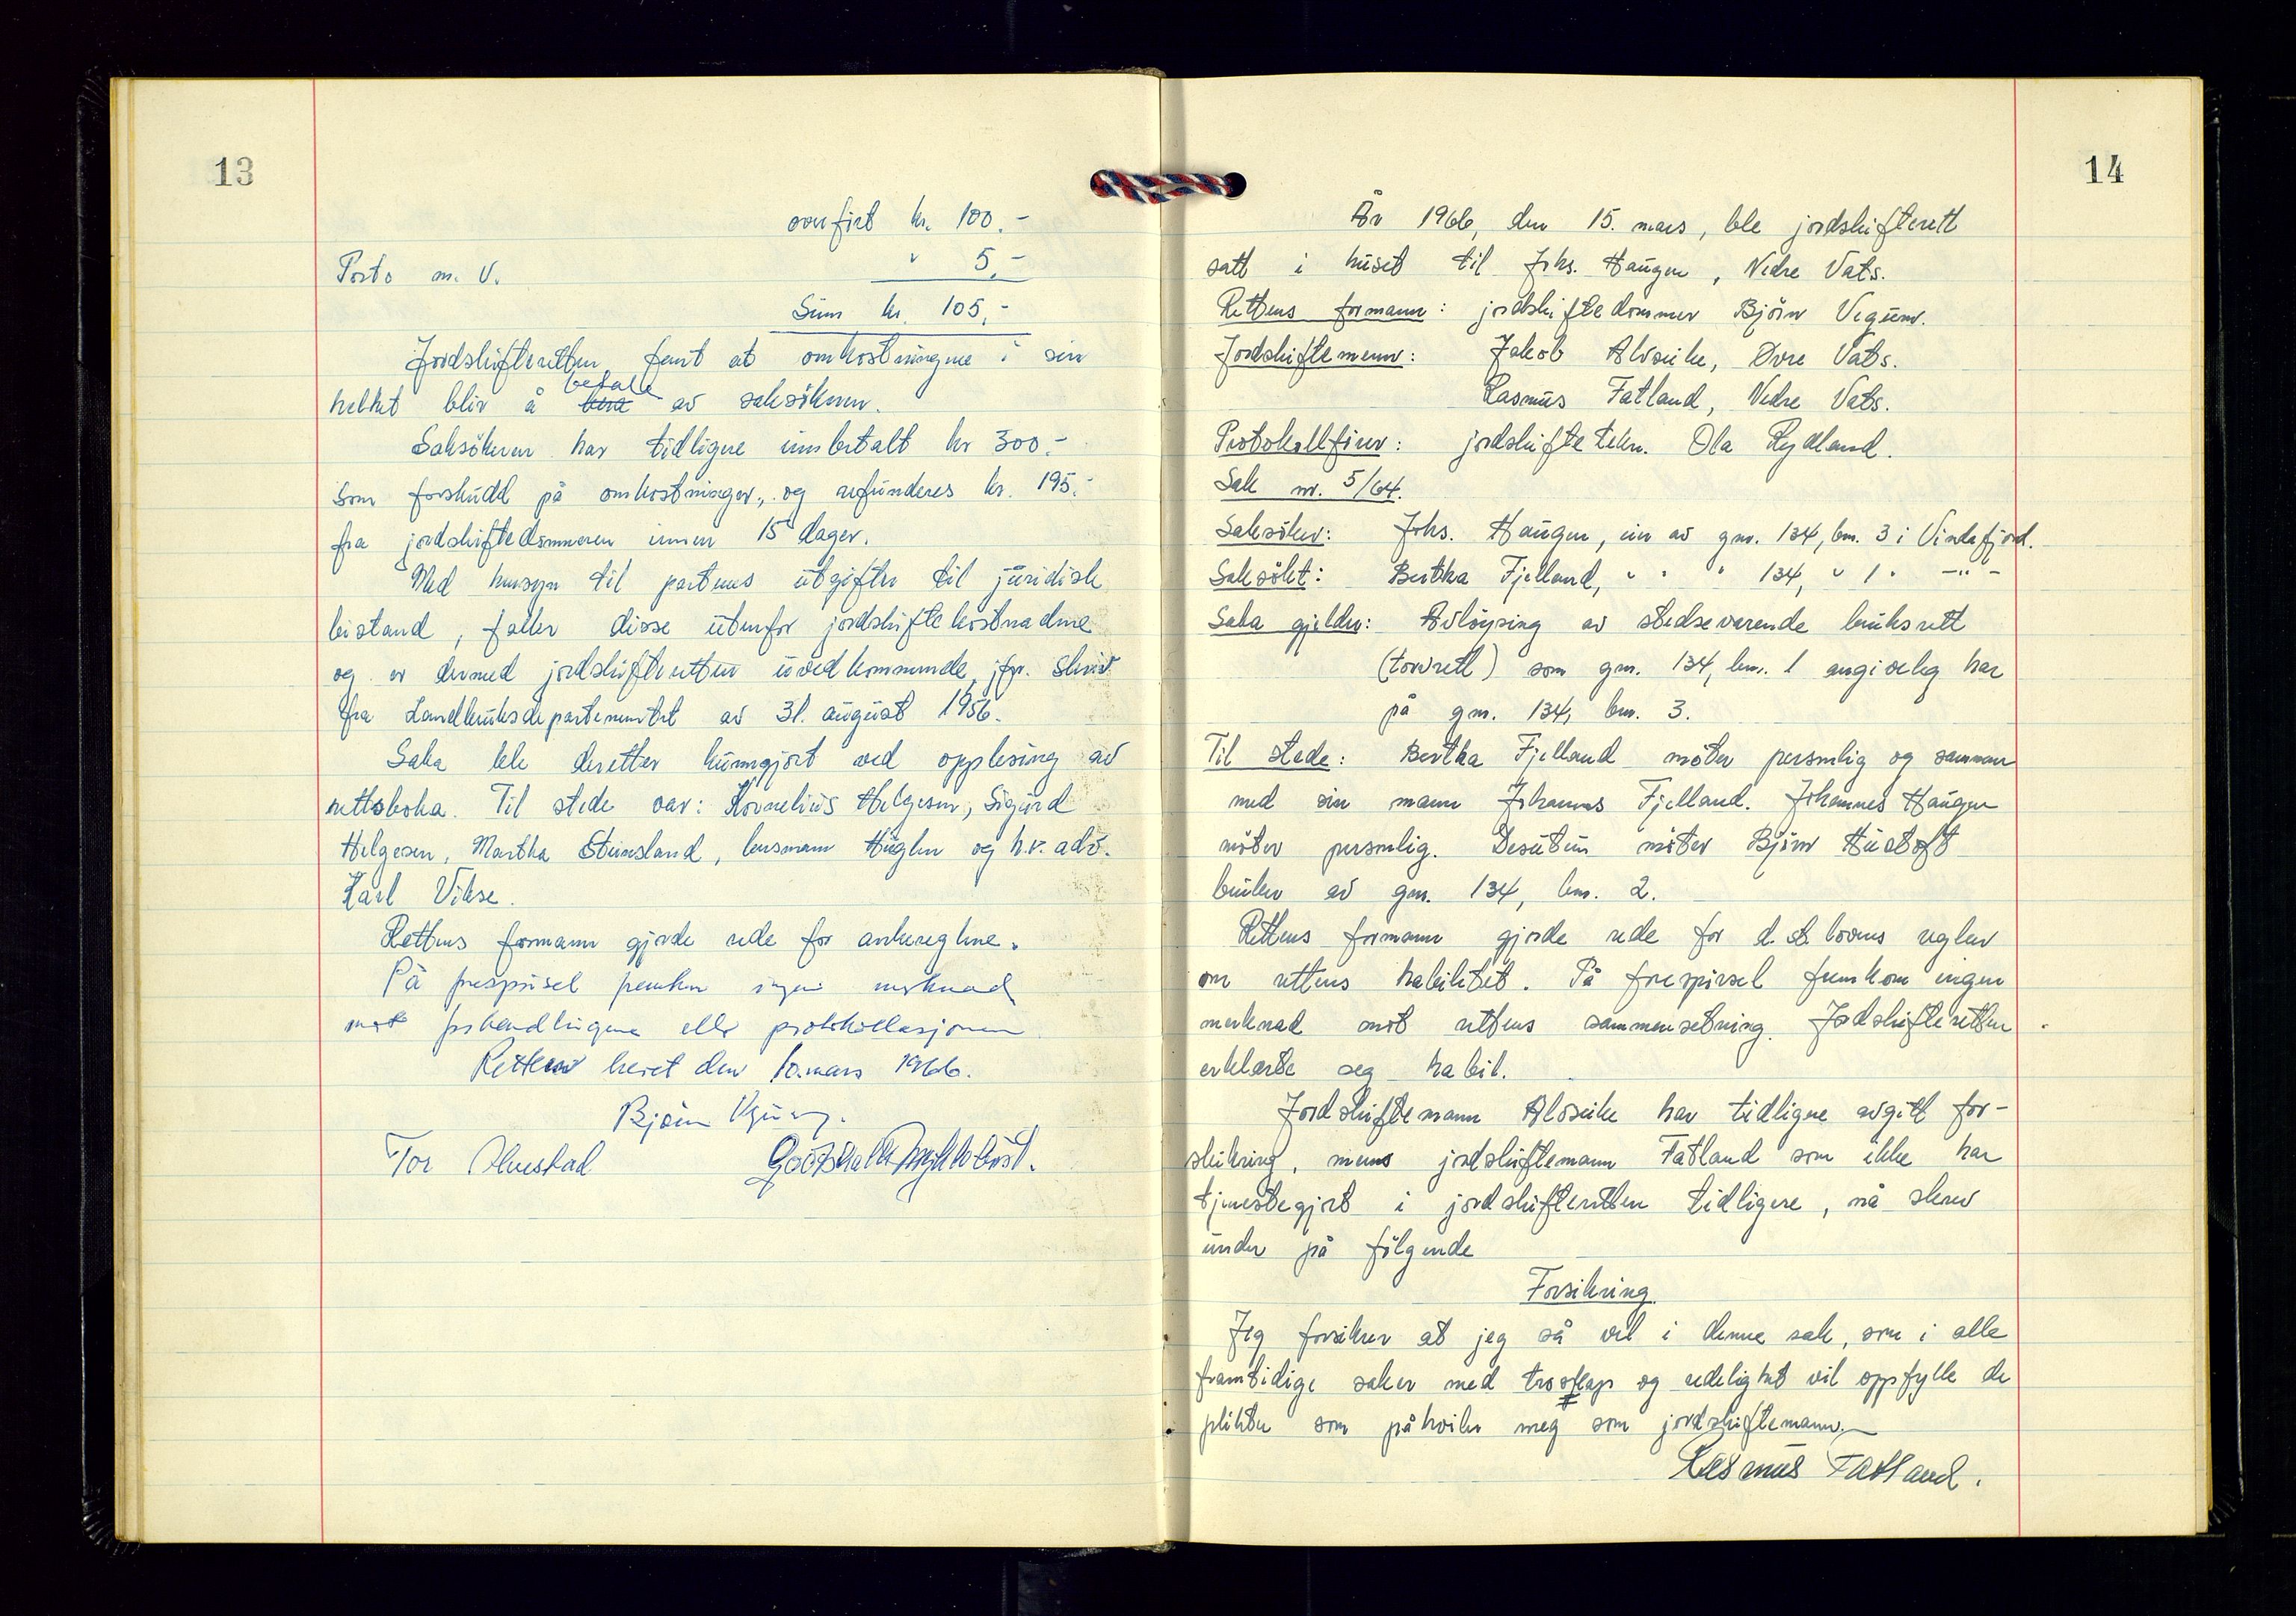 13
overført kr. 100.-
Porto m. v. " 5,-
Sum kr. 105,-
Jordskifteretten fant at omkostningene i sin
helhet blir å bære betale av saksøkeren.
Saksøkeren har tidligere innbetalt kr 300.-
som forskudd på omkostninger, og refunderes kr. 195.-
fra jordskiftedommeren innen 15 dager.
Med hensyn til partenes utgifter til juridisk
bistand, faller disse utenfor jordskiftekostnadene
og er dermed jordskifteretten uvedkommende, jfr. skriv
fra Landbruksdepartementet av 31. august 1956.
Saka ble deretter kunngjort ved opplesing av
rettsboka. Til stede var: Kornelius Helgesen, Sigurd
Helgesen, Martha Steinsland, lensmann Huglen og h.r. adv.
Karl Vikse.
Rettens formann gjorde rede for ankereglene.
På forespørsel fremkom ingen merknad
mot forhandlingene eller protokollasjonen
Retten hevet den 10. mars 1966.
Bjørn
Tor
14
År 1966, den 15. mars, ble jordskifterett
satt i huset til Johs. Haugen, Nedre Vats.
Rettens formann: jordskiftedommer Bjørn
Jordskiftemenn: Jakob Alvseike, Øvre Vats.
Rasmus Fatland, Nedre Vats.
Protokollfører: jordskiftetekn. Ola Rydland.
Sak nr. 5/64.
Saksøker: Johs. Haugen, eier av gnr. 134, bnr. 3 i Vindafjord.
Saksøkt: Bertha Fjelland, " " " 134, " 1 " -"-
Saka gjelder: Avløysing av stedsevarende bruksrett
(torvrett) som gnr. 134, bnr. 1 angivelig har
på gnr. 134, bnr. 3.
Til stede: Bertha Fjelland møter personlig og sammen
med sin mann Johannes Fjelland. Johannes Haugen
møter personlig. Desuten møter Bjørn Hustoft
bruker av gnr. 134, bnr. 2.
Rettens formann gjorde rede for d. st. lovens regler
om rettens habilitet. På forespørsel fremkom ingen
merknad mot rettens sammensetning. Jordskifteretten
erklærte seg habil.
Jordskiftemann Alvseike har tidligere avgitt for-
sikring, mens jordskiftemann Fatland som ikke har
tjenestegjort i jordskifteretten tidligere, nå skrev
under på følgende
Forsikring
Jeg forsikrer at jeg så vel i denne sak, som i alle
framtidige saker med troskap og redelighet vil oppfylle de
plikter som påhviler meg som jordskiftemann.
Rasmus Fatland.